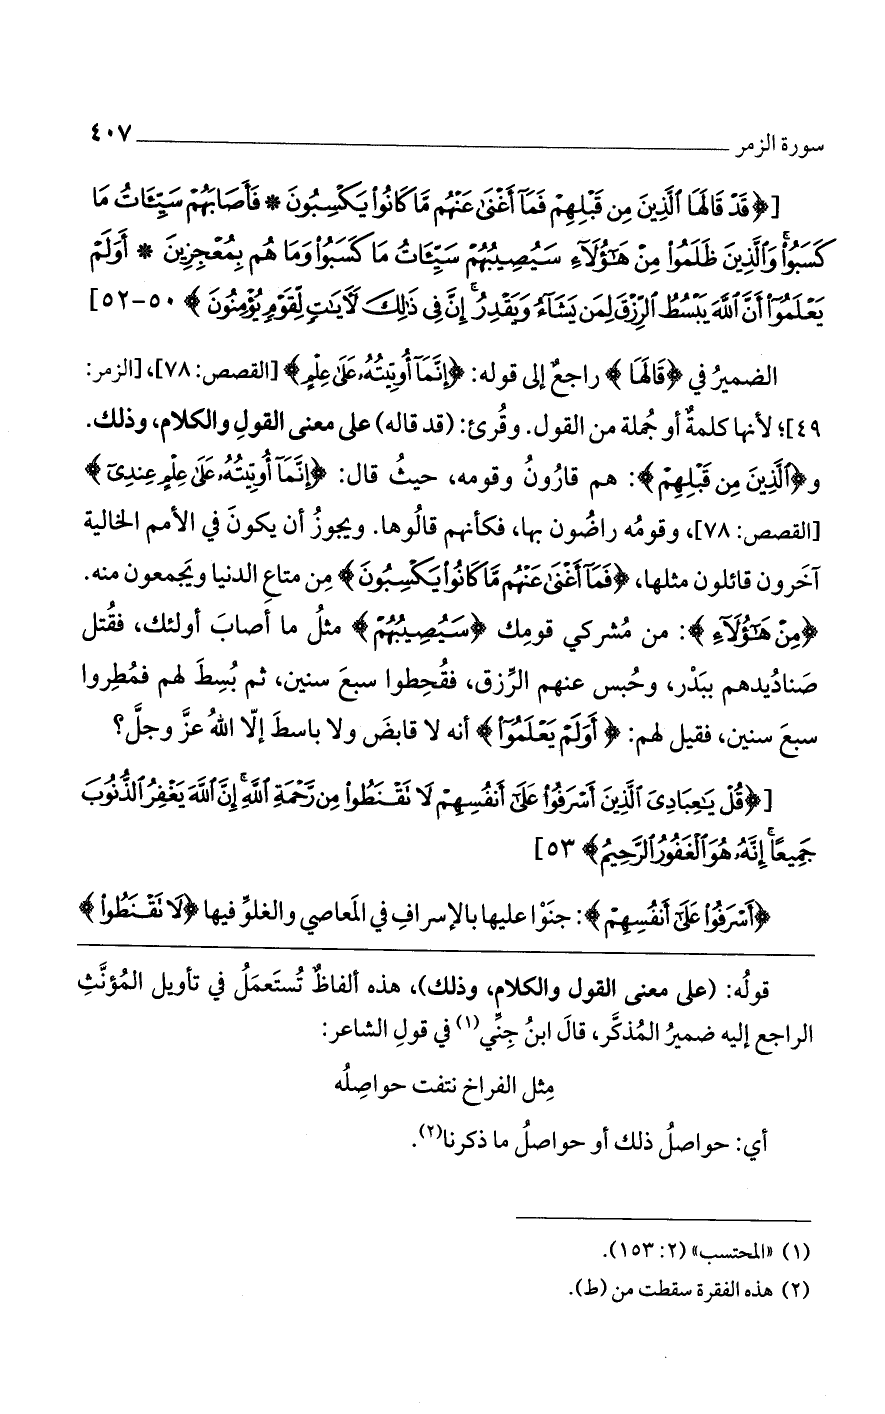 سورة الزمر ٤٠٧
[﴿قَدْ قَالَهَا الَّذِينَ مِن قَبْلِهِمْ فَمَا أَغْنَىٰ عَنْهُم مَّا كَانُوا يَكْسِبُونَ * فَأَصَابَهُمْ سَيِّئَاتُ مَا
كَسَبُوا ۚ وَالَّذِينَ ظَلَمُوا مِنْ هَٰؤُلَاءِ سَيُصِيبُهُمْ سَيِّئَاتُ مَا كَسَبُوا وَمَا هُم بِمُعْجِزِينَ * أَوَلَمْ
يَعْلَمُوا أَنَّ اللَّهَ يَبْسُطُ الرِّزْقَ لِمَن يَشَاءُ وَيَقْدِرُ ۚ إِنَّ فِي ذَٰلِكَ لَآيَاتٍ لِّقَوْمٍ يُؤْمِنُونَ﴾ ٥٠-٥٢]
الضميرُ في ﴿قَالَهَا﴾ راجعٌ إلى قوله: ﴿إِنَّمَا أُوتِيتُهُ عَلَىٰ عِلْمٍ﴾ [القصص: ٧٨]، [الزمر:
٤٩]؛ لأنها كلمةٌ أو جُملة من القول. وقُرئ: (قد قاله) على معنى القولِ والكلام، وذلك.
و﴿الَّذِينَ مِن قَبْلِهِمْ﴾: هم قارُونُ وقومه، حيثُ قال: ﴿إِنَّمَا أُوتِيتُهُ عَلَىٰ عِلْمٍ عِندِي﴾
[القصص: ٧٨]، وقومُه راضُون بها، فكأنهم قالُوها. ويجوزُ أن يكونَ في الأمم الخالية
آخَرون قائلون مثلها، ﴿فَمَا أَغْنَىٰ عَنْهُم مَّا كَانُوا يَكْسِبُونَ﴾ مِن متاعِ الدنيا ويَجمعون منه.
﴿مِنْ هَٰؤُلَاءِ﴾: من مُشركي قومِك ﴿سَيُصِيبُهُمْ﴾ مثلُ ما أصابَ أولئك، فقُتل
صَناديدهم ببَدْر، وحُبس عنهم الرِّزق، فقُحِطوا سبعَ سنين، ثم بُسِطَ لهم فمُطِروا
سبعَ سنين، فقيل لهم: ﴿أَوَلَمْ يَعْلَمُوا﴾ أنه لا قابضَ ولا باسطَ إلّا اللهُ عزَّ وجلَّ؟
[﴿قُلْ يَا عِبَادِيَ الَّذِينَ أَسْرَفُوا عَلَىٰ أَنفُسِهِمْ لَا تَقْنَطُوا مِن رَّحْمَةِ اللَّهِ ۚ إِنَّ اللَّهَ يَغْفِرُ الذُّنُوبَ
جَمِيعًا ۚ إِنَّهُ هُوَ الْغَفُورُ الرَّحِيمُ﴾ ٥٣]
﴿أَسْرَفُوا عَلَىٰ أَنفُسِهِمْ﴾: جنَوْا عليها بالإسرافِ في المَعاصي والغلوِّ فيها ﴿لَا تَقْنَطُوا﴾
قولُه: (على معنى القول والكلام، وذلك)، هذه ألفاظٌ تُستَعمَلُ في تأويل المُؤنَّثِ
الراجع إليه ضميرُ المُذكَّر، قالَ ابنُ جِنِّي(١) في قولِ الشاعر:
مِثل الفراخ نتفت حواصِلُه
أي: حواصلُ ذلك أو حواصلُ ما ذكرنا(٢).
(١) «المحتسب» (٢: ١٥٣).
(٢) هذه الفقرة سقطت من (ط).